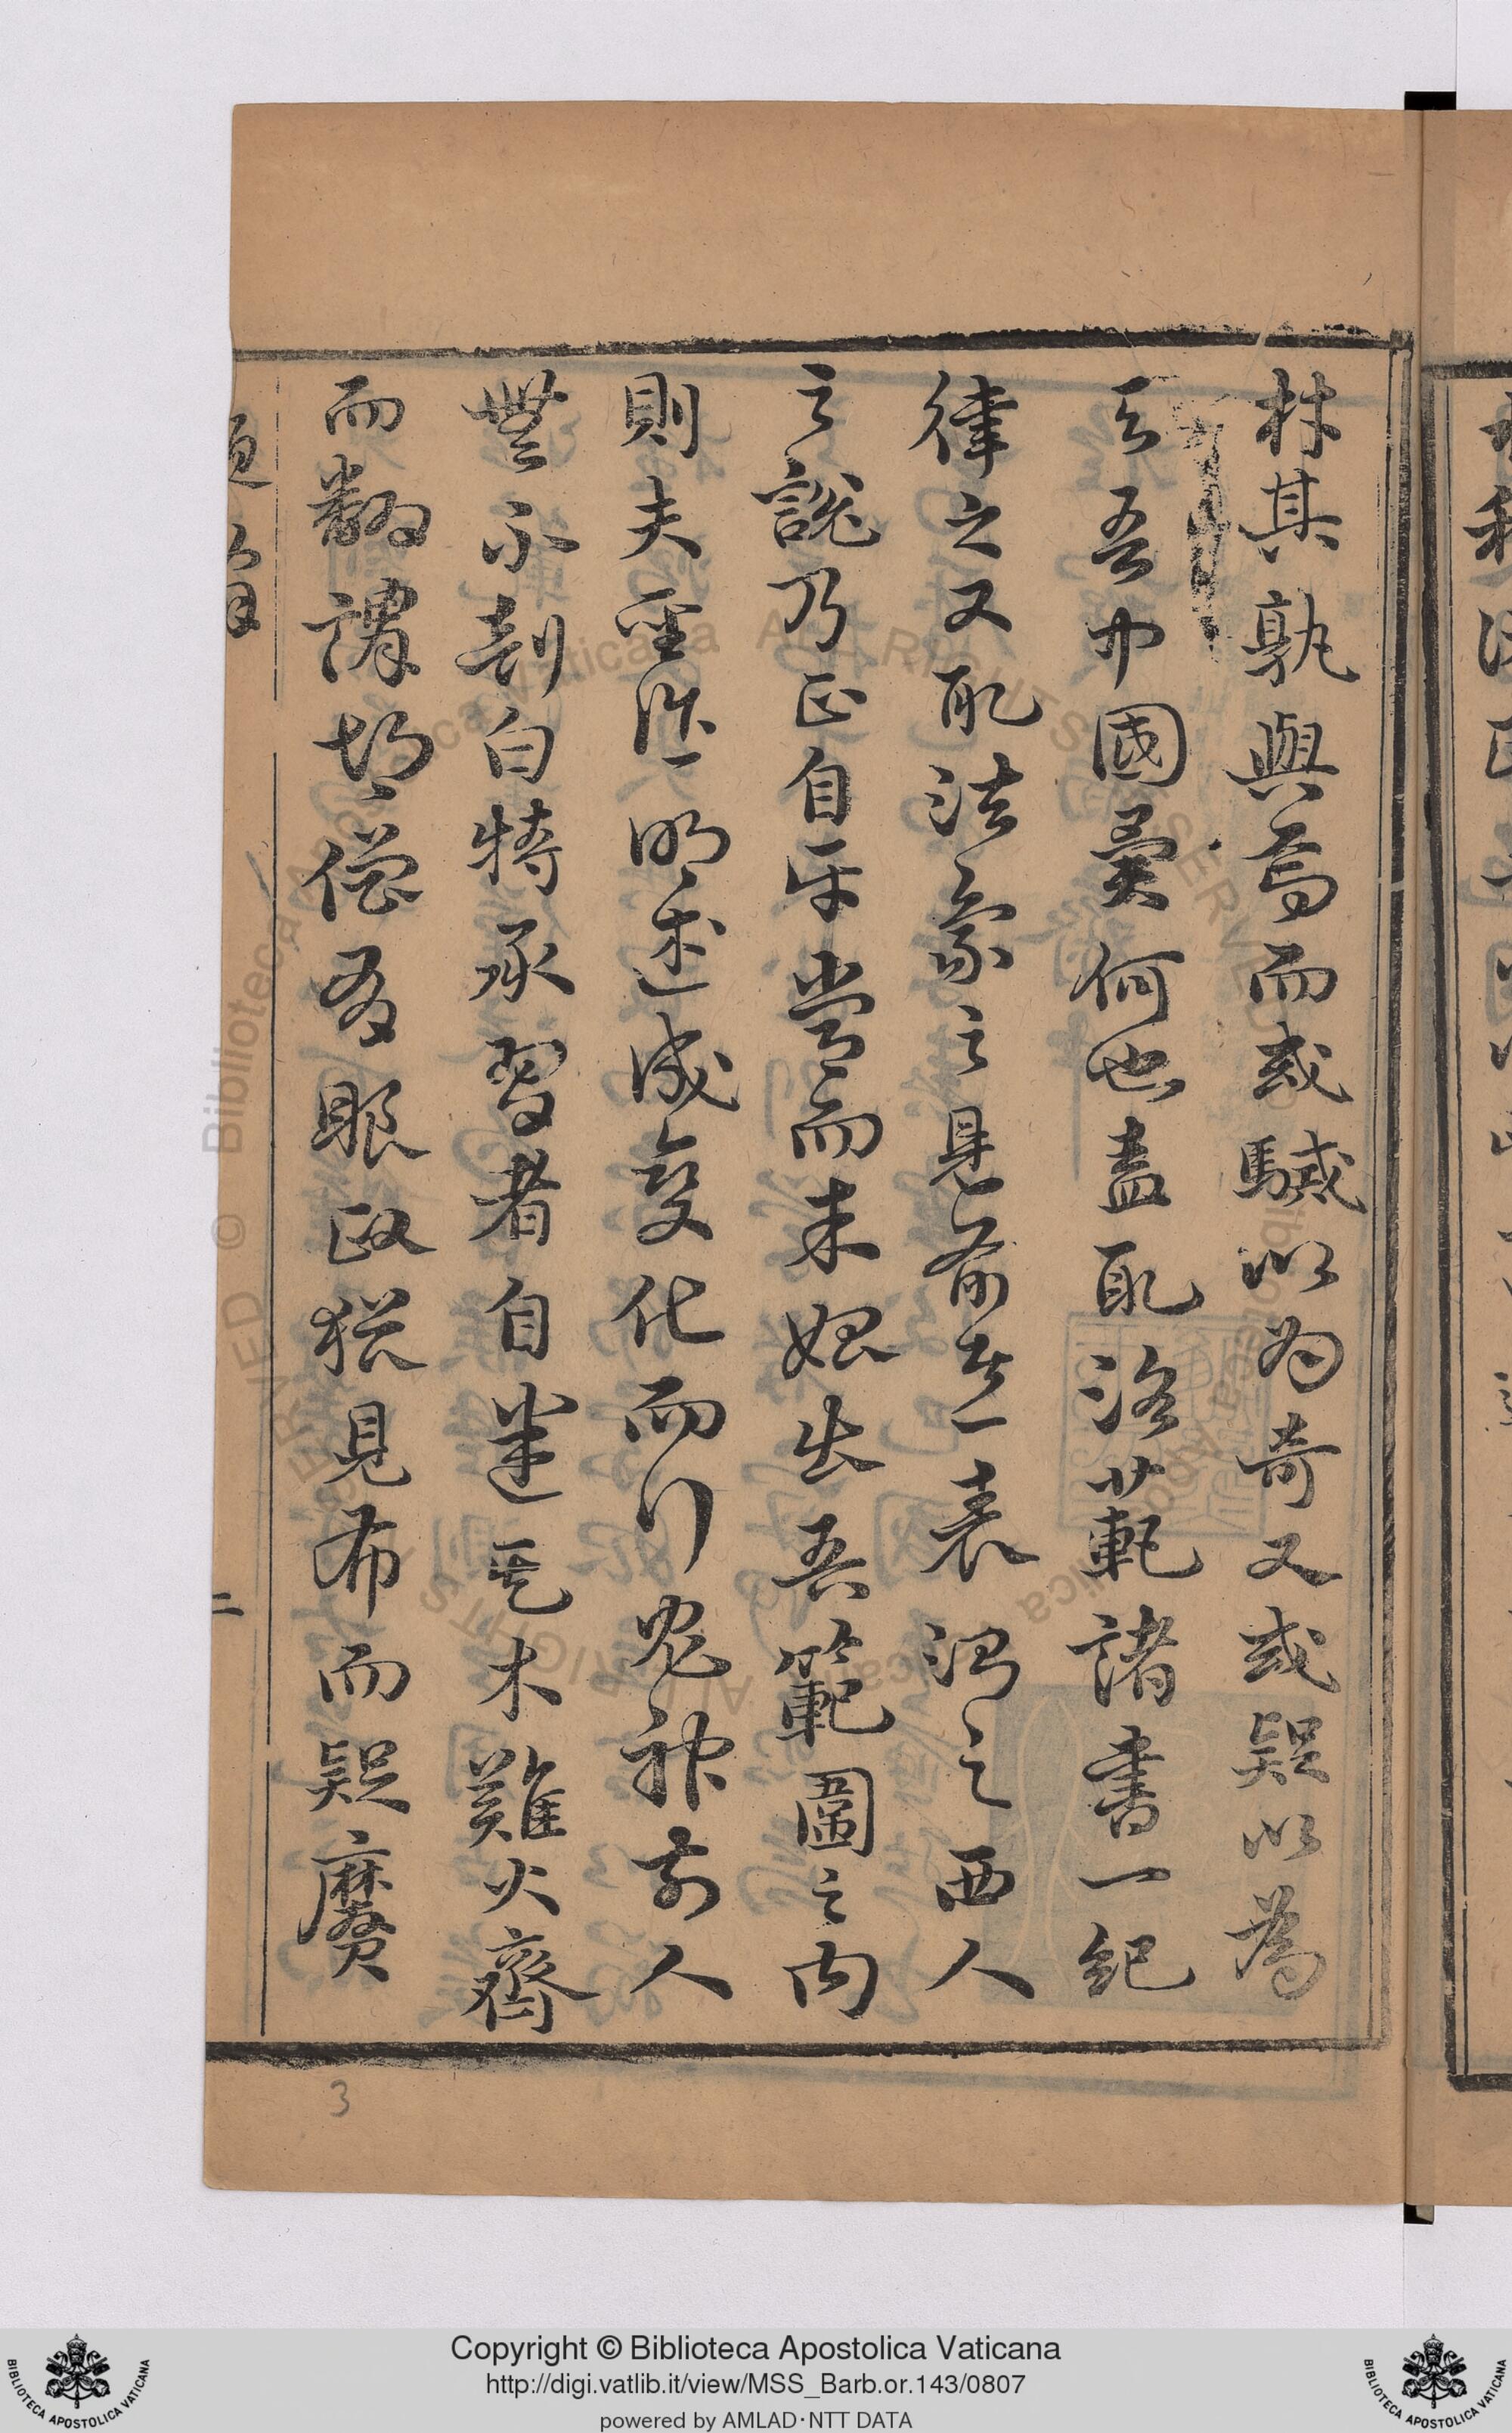 材其孰與焉而或駴以為奇又或疑以為
吾中國奚何也蓋配洛範諸書一紀
律之又配法象之見前出一表謂之西人
之說乃正自乎當而未始出吾範圖之內
則夫聖作明述成變化而行鬼神前人
無不剖白特承習者自迷耳木難火齊
而翻謂胡從有眼政猶見布而疑黂
二
3
Copyright © Biblioteca Apostolica Vaticana
http://digi.vatlib.it/view/MSS_Barb.or.143/0807
powered by AMLAD·NTT DATA
BIBLIOTECA APOSTOLICA VATICANA
BIBLIOTECA APOSTOLICA VATICANA